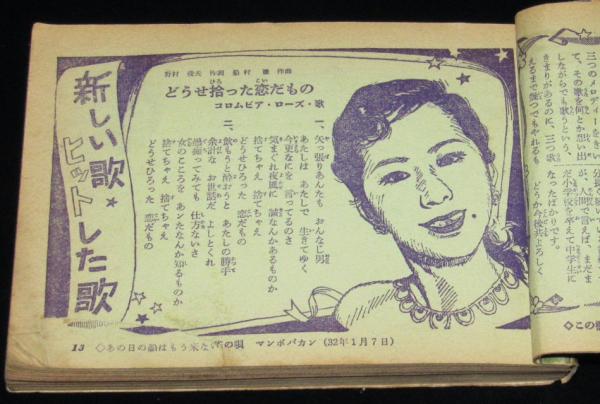 三つのメロディーをきい
て、その歌を何とか思い出
しながらでも歌うという、
きまりがあるのに、三つ歌
えるまで幾つでもやれるも
が、人間で言えば、まだま
だ小学校を卒えて中学生に
なったばかりです。
どうか今後共よろしく
新しい歌・ヒットした歌
野村俊夫 作詞 船村徹 作曲
どうせ拾った恋だもの
コロムビア・ローズ・歌
一、矢っ張りあんたも おんなじ男
あたしは あたしで 生きてゆく
今更なにを 言ってるのさ
気まぐれ夜風に 誠なんかあるものか
捨てちゃえ 捨てちゃえ
どうせひろった 恋だもの
二、飲もうと酔おうと あたしの勝手
余計な お世話だ よしとくれ
愚痴ってみても 仕方ないさ
女のこころを あンたなんか知るものか
捨てちゃえ 捨てちゃえ
どうせひろった 恋だもの
13 ◇あの日の船はもう来ない の唄 マンボバカン (32年1月7日)
◇この